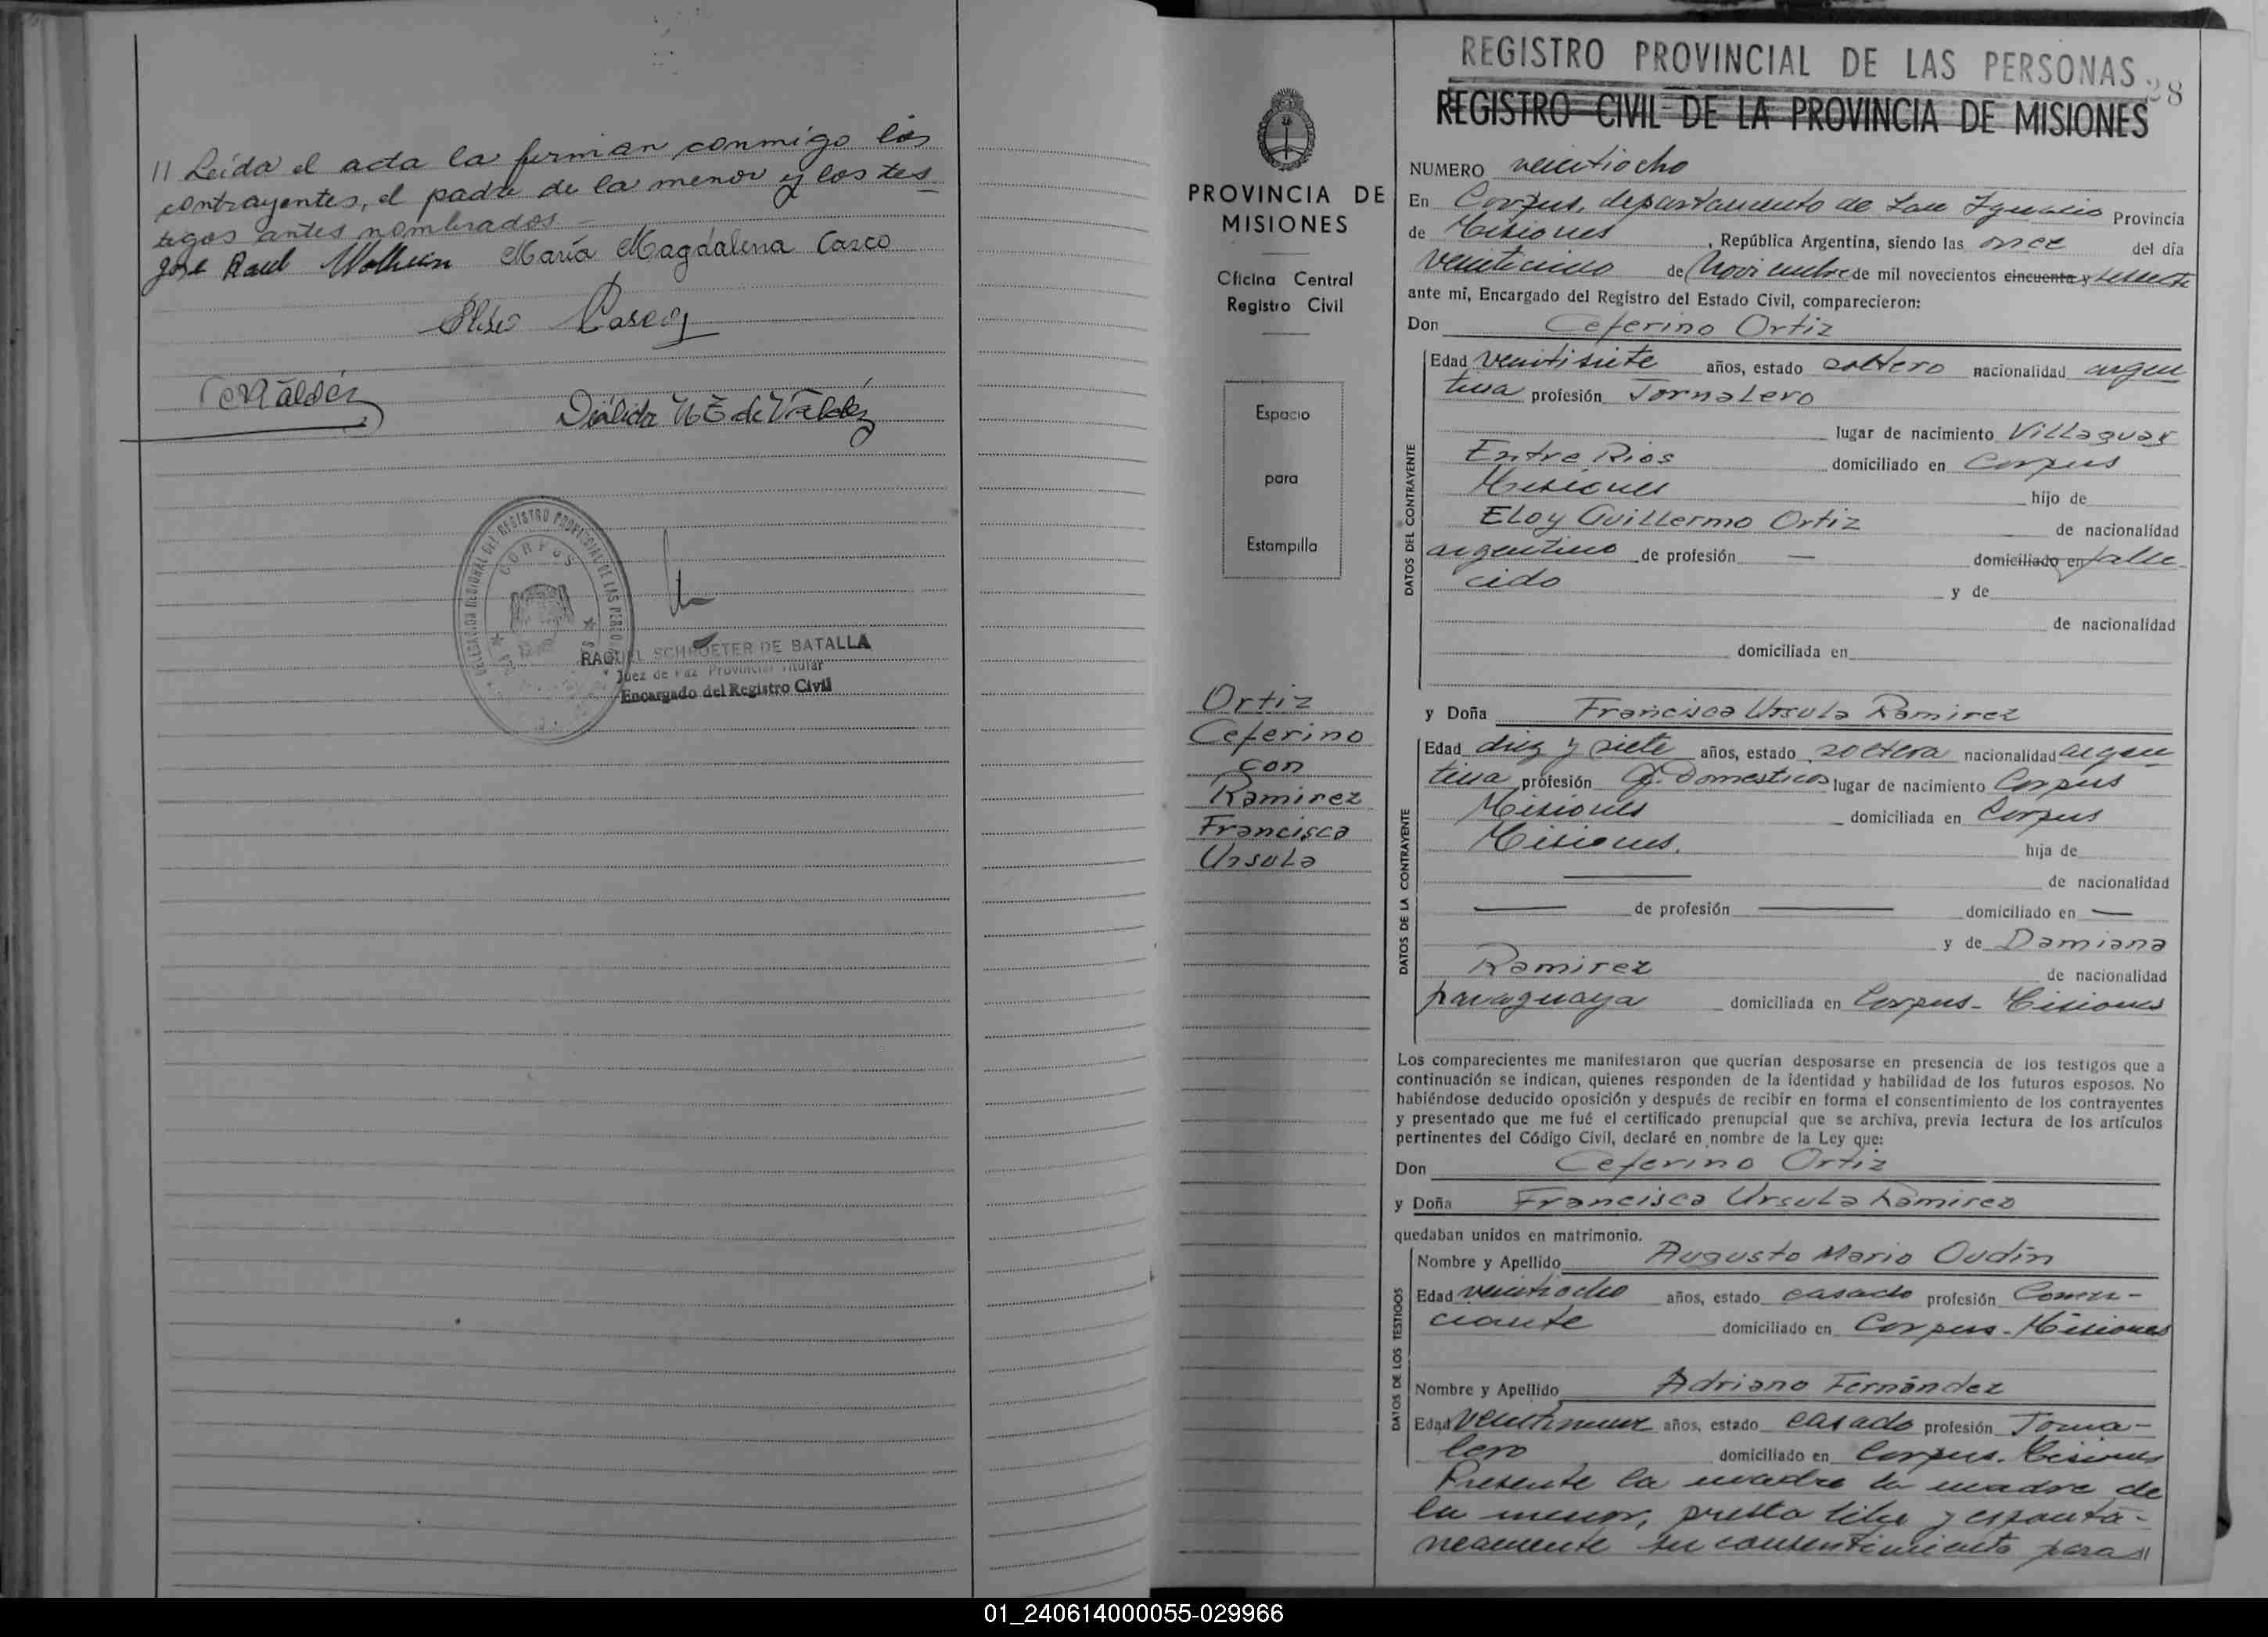 // Leída el acta la firman conmigo los
contrayentes, el padre de la menor y los tes
tigos antes nombrados -
José Raul Wolhein María Magdalena Casco
Casco
Diálida de Valdéz
DELEGACION REGIONAL DEL REGISTRO PROVINCIAL DE LAS PERSONAS
CORPUS
RAQUEL SCHROETER DE BATALLA
Juez de Paz Provincial Titular
Encargado del Registro Civil
PROVINCIA DE
MISIONES
Oficina Central
Registro Civil
Espacio
para
Estampilla
Ortiz
Ceferino
con
Ramirez
Francisca
Ursula
REGISTRO PROVINCIAL DE LAS PERSONAS
28
REGISTRO CIVIL DE LA PROVINCIA DE MISIONES
NUMERO veintiocho
En Corpus, departamento de San Ignacio Provincia
de Misiones, República Argentina, siendo las once del día
veinticinco de Noviembre de mil novecientos cincuenta y sesenta
ante mí, Encargado del Registro del Estado Civil, comparecieron:
Don Ceferino Ortiz
DATOS DEL CONTRAYENTE
Edad veintisiete años, estado soltero nacionalidad argen
tina profesión Jornalero
lugar de nacimiento Villaguay
Entre Rios domiciliado en Corpus
Misiones hijo de
Eloy Guillermo Ortiz de nacionalidad
argentino de profesión — domiciliado en falle
cido y de
de nacionalidad
domiciliada en
y Doña Francisca Ursula Ramirez
DATOS DE LA CONTRAYENTE
Edad diez y siete años, estado soltera nacionalidad argen
tina profesión Q. Domesticos lugar de nacimiento Corpus
Misiones domiciliada en Corpus
Misiones. hija de
— de nacionalidad
— de profesión — domiciliado en —
y de Damiana
Ramirez de nacionalidad
paraguaya domiciliada en Corpus - Misiones
Los comparecientes me manifestaron que querían desposarse en presencia de los testigos que a
continuación se indican, quienes responden de la identidad y habilidad de los futuros esposos. No
habiéndose deducido oposición y después de recibir en forma el consentimiento de los contrayentes
y presentado que me fué el certificado prenupcial que se archiva, previa lectura de los artículos
pertinentes del Código Civil, declaré en nombre de la Ley que:
Don Ceferino Ortiz
y Doña Francisca Ursula Ramirez
quedaban unidos en matrimonio.
DATOS DE LOS TESTIGOS
Nombre y Apellido Augusto Mario Oudin
Edad veintiocho años, estado casado profesión Comer-
ciante domiciliado en Corpus - Misiones
Nombre y Apellido Adriano Fernández
Edad veintinueve años, estado casado profesión Jorna-
lero domiciliado en Corpus. Misiones
Presente la madre la madre de
la menor, presta libre y espontá-
neamente su consentimiento para //
01_240614000055-029966